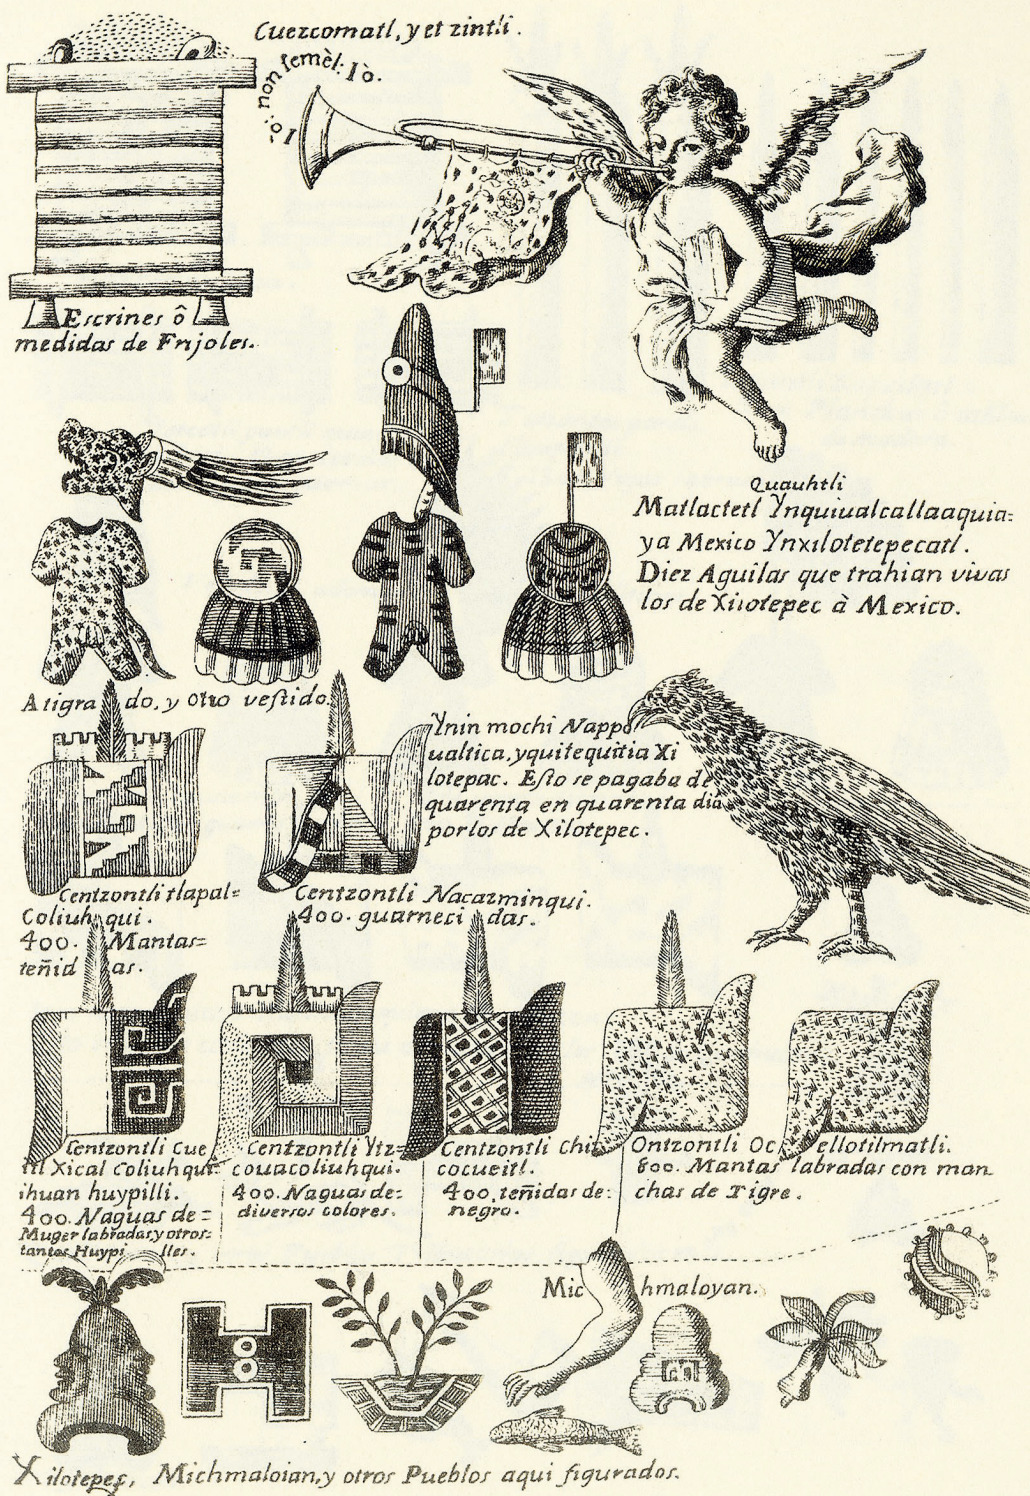 Cuezcomatl, y et zintli.
Io: non semèl: Iò.
Escrines ô
medidas de Frijoles.
Quauhtli
Matlactetl Ynquiualcallaaquia=
ya Mexico Ynxilotetepecatl.
Diez Aguilas que trahian vivas
los de Xilotepec à Mexico.
Atigrado, y otro vestido.
Ynin mochi Nappo
ualtica, yquitequitia Xi
lotepac. Esto se pagaba de
quarenta en quarenta dia
por los de Xilotepec.
Centzontli tlapal=
Coliuhqui.
400. Mantas=
teñidas.
Centzontli Nacazminqui.
400. guarnecidas.
Centzontli Cue
itl Xical coliuhqui
ihuan huypilli.
400. Naguas de=
Muger labradas y otros=
tantas Huypilles.
Centzontli Ytz=
couacoliuhqui.
400. Naguas de=
diversos colores.
Centzontli Chi
cocueitl.
400. teñidas de=
negro.
Ontzontli Ocellotilmatli.
800. Mantas labradas con man
chas de Tigre.
Michmaloyan.
Xilotepes, Michmaloian, y otros Pueblos aqui figurados.